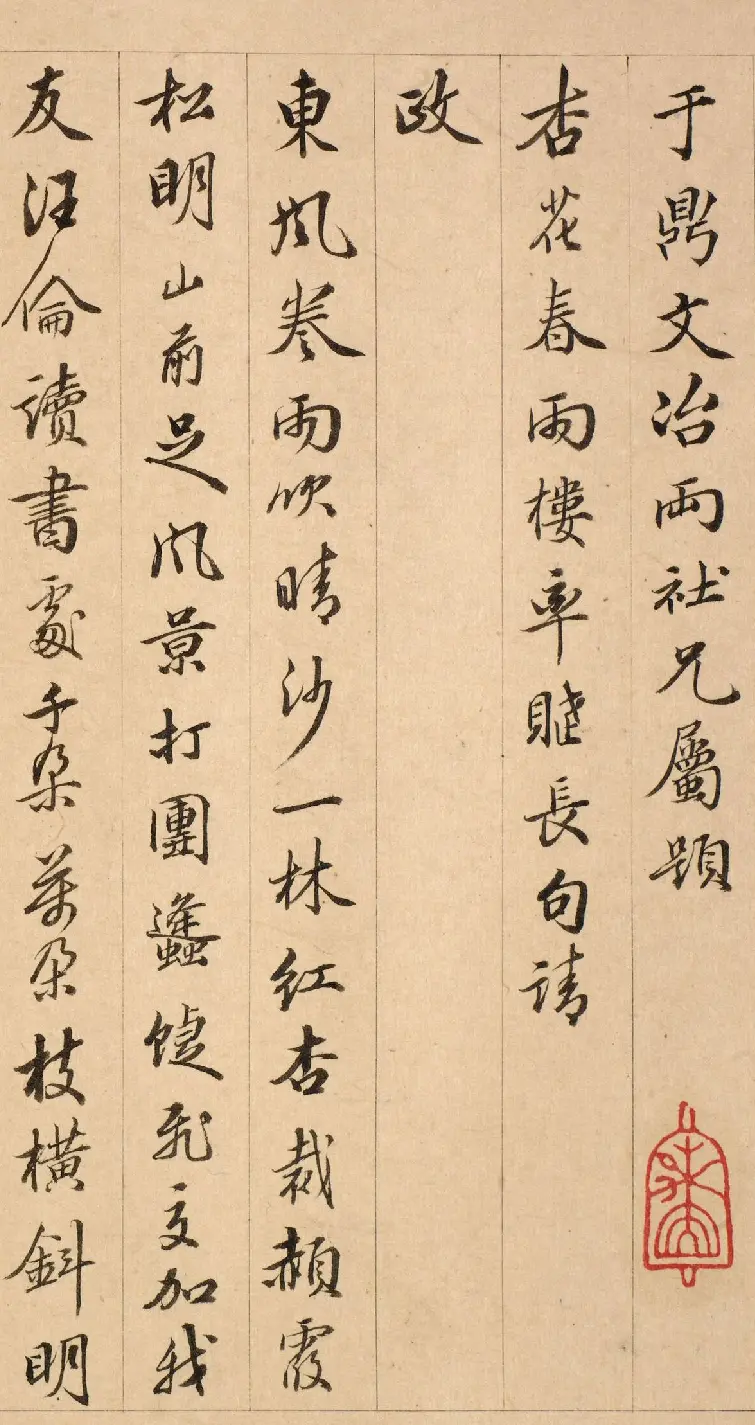 于鼎文冶兩社兄屬題
杏花春雨樓率賦長句請
政
東風卷雨吹晴沙一林紅杏裁赬霞
松明山前足風景打團蠭蜨飛交加我
友汪倫讀書處千朶萬朶枝橫斜明